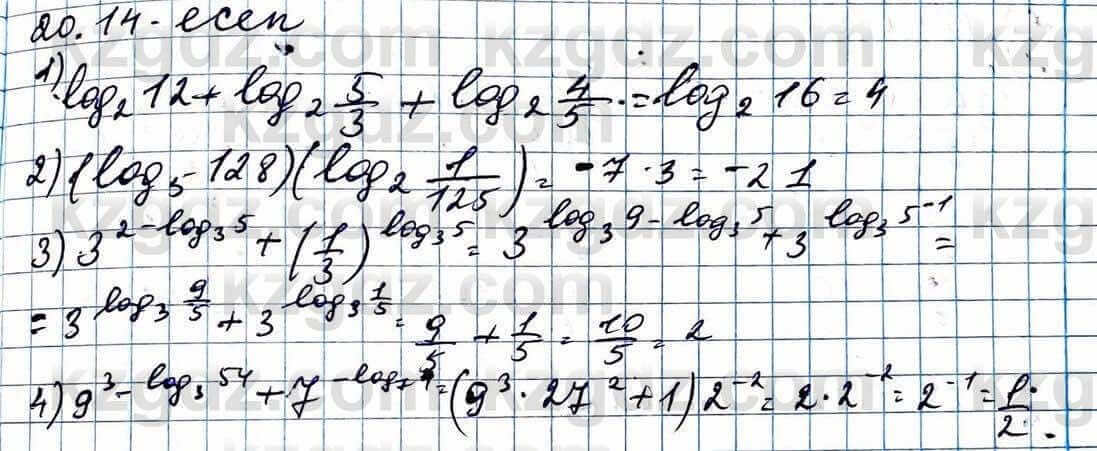 20.14-есеп
1) log₂ 12 + log₂ 5/3 + log₂ 4/5 = log₂ 16 = 4
2) (log₅ 128)(log₂ 1/125) = -7·3 = -21
3) 3^(2-log₃5) + (1/3)^(log₃5) = 3^(log₃9-log₃5) + 3^(log₃5⁻¹) =
= 3^(log₃ 9/5) + 3^(log₃ 1/5) = 9/5 + 1/5 = 10/5 = 2
4) 9^(3-log₃54) + 7^(-log₇4) = (9³·27² + 1) 2⁻² = 2·2⁻² = 2⁻¹ = 1/2.
kzgdz.com